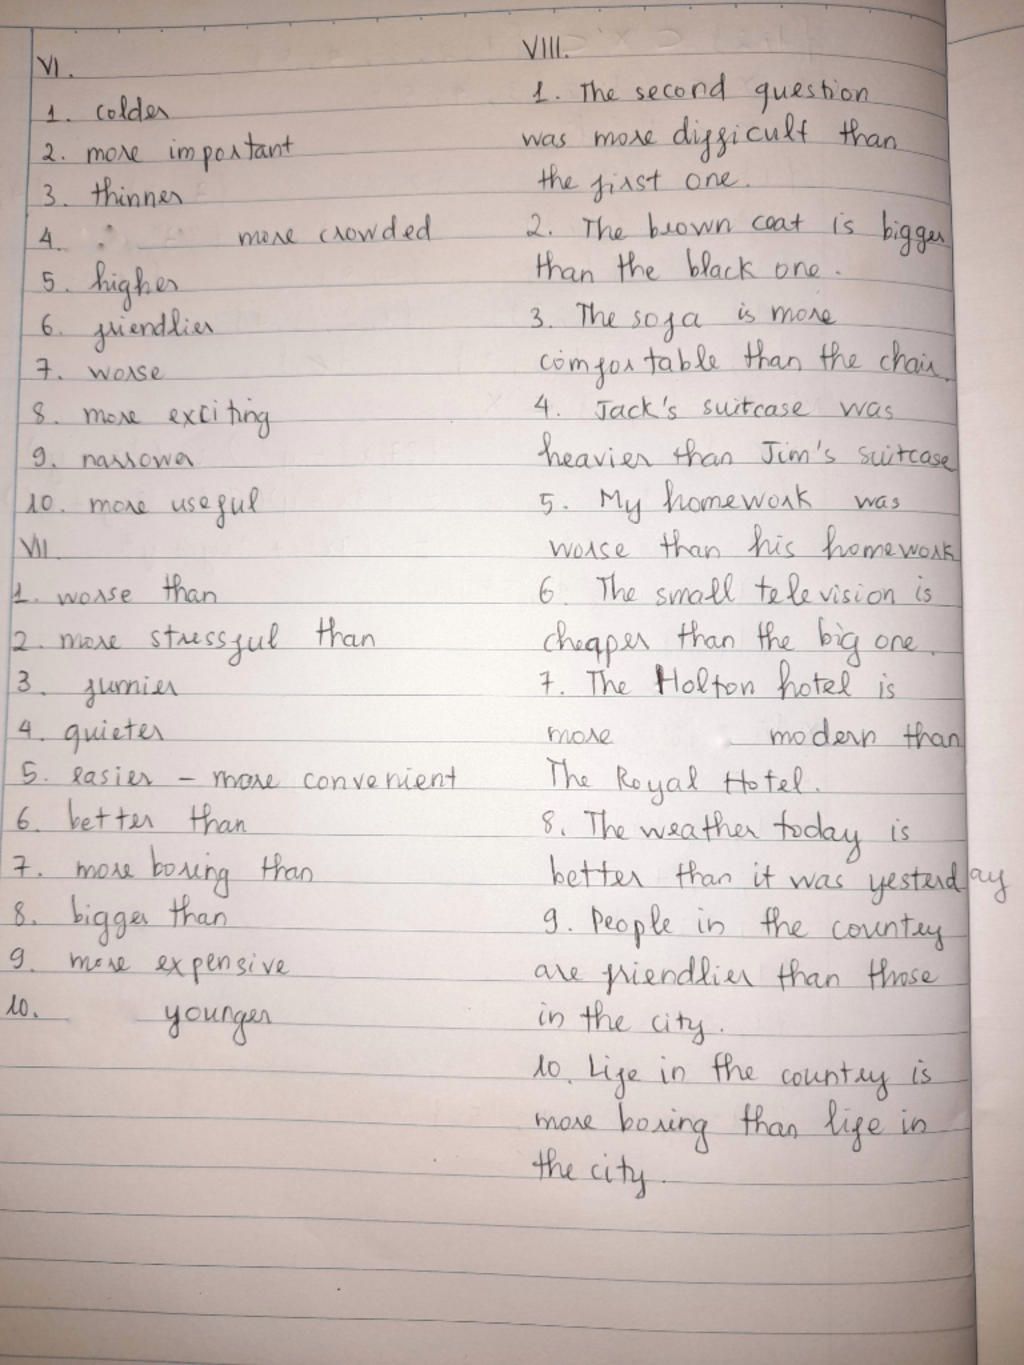 VI.
1. colder
2. more important
3. thinner
4. more crowded
5. higher
6. friendlier
7. worse
8. more exciting
9. narrower
10. more useful
VII
1. worse than
2. more stressful than
3. funnier
4. quieter
5. easier - more convenient
6. better than
7. more boring than
8. bigger than
9. more expensive
10. younger
VIII.
1. The second question
was more difficult than
the first one.
2. The brown coat is bigger
than the black one.
3. The sofa is more
comfortable than the chair.
4. Jack's suitcase was
heavier than Jim's suitcase
5. My homework was
worse than his homework
6. The small television is
cheaper than the big one.
7. The Holton hotel is
more modern than
The Royal Hotel.
8. The weather today is
better than it was yesterday
9. People in the country
are friendlier than those
in the city.
10. Life in the country is
more boring than life in
the city.